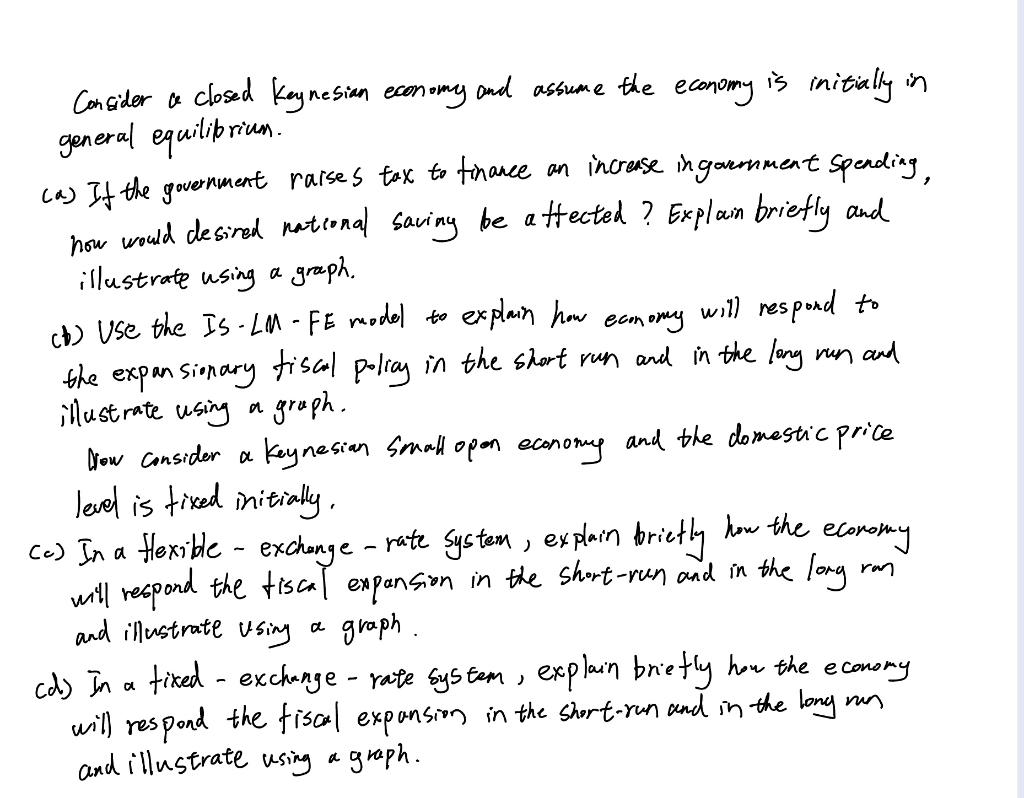 Consider a closed Keynesian economy and assume the economy is initially in
general equilibrium.
(a) If the government raises tax to finance an increase in government spending,
how would desired national saving be affected? Explain briefly and
illustrate using a graph.
(b) Use the IS-LM-FE model to explain how economy will respond to
the expansionary fiscal policy in the short run and in the long run and
illustrate using a graph.
Now consider a Keynesian small open economy and the domestic price
level is fixed initially.
(c) In a flexible-exchange-rate system, explain briefly how the economy
will respond the fiscal expansion in the short-run and in the long run
and illustrate using a graph.
(d) In a fixed-exchange-rate system, explain briefly how the economy
will respond the fiscal expansion in the short-run and in the long run
and illustrate using a graph.